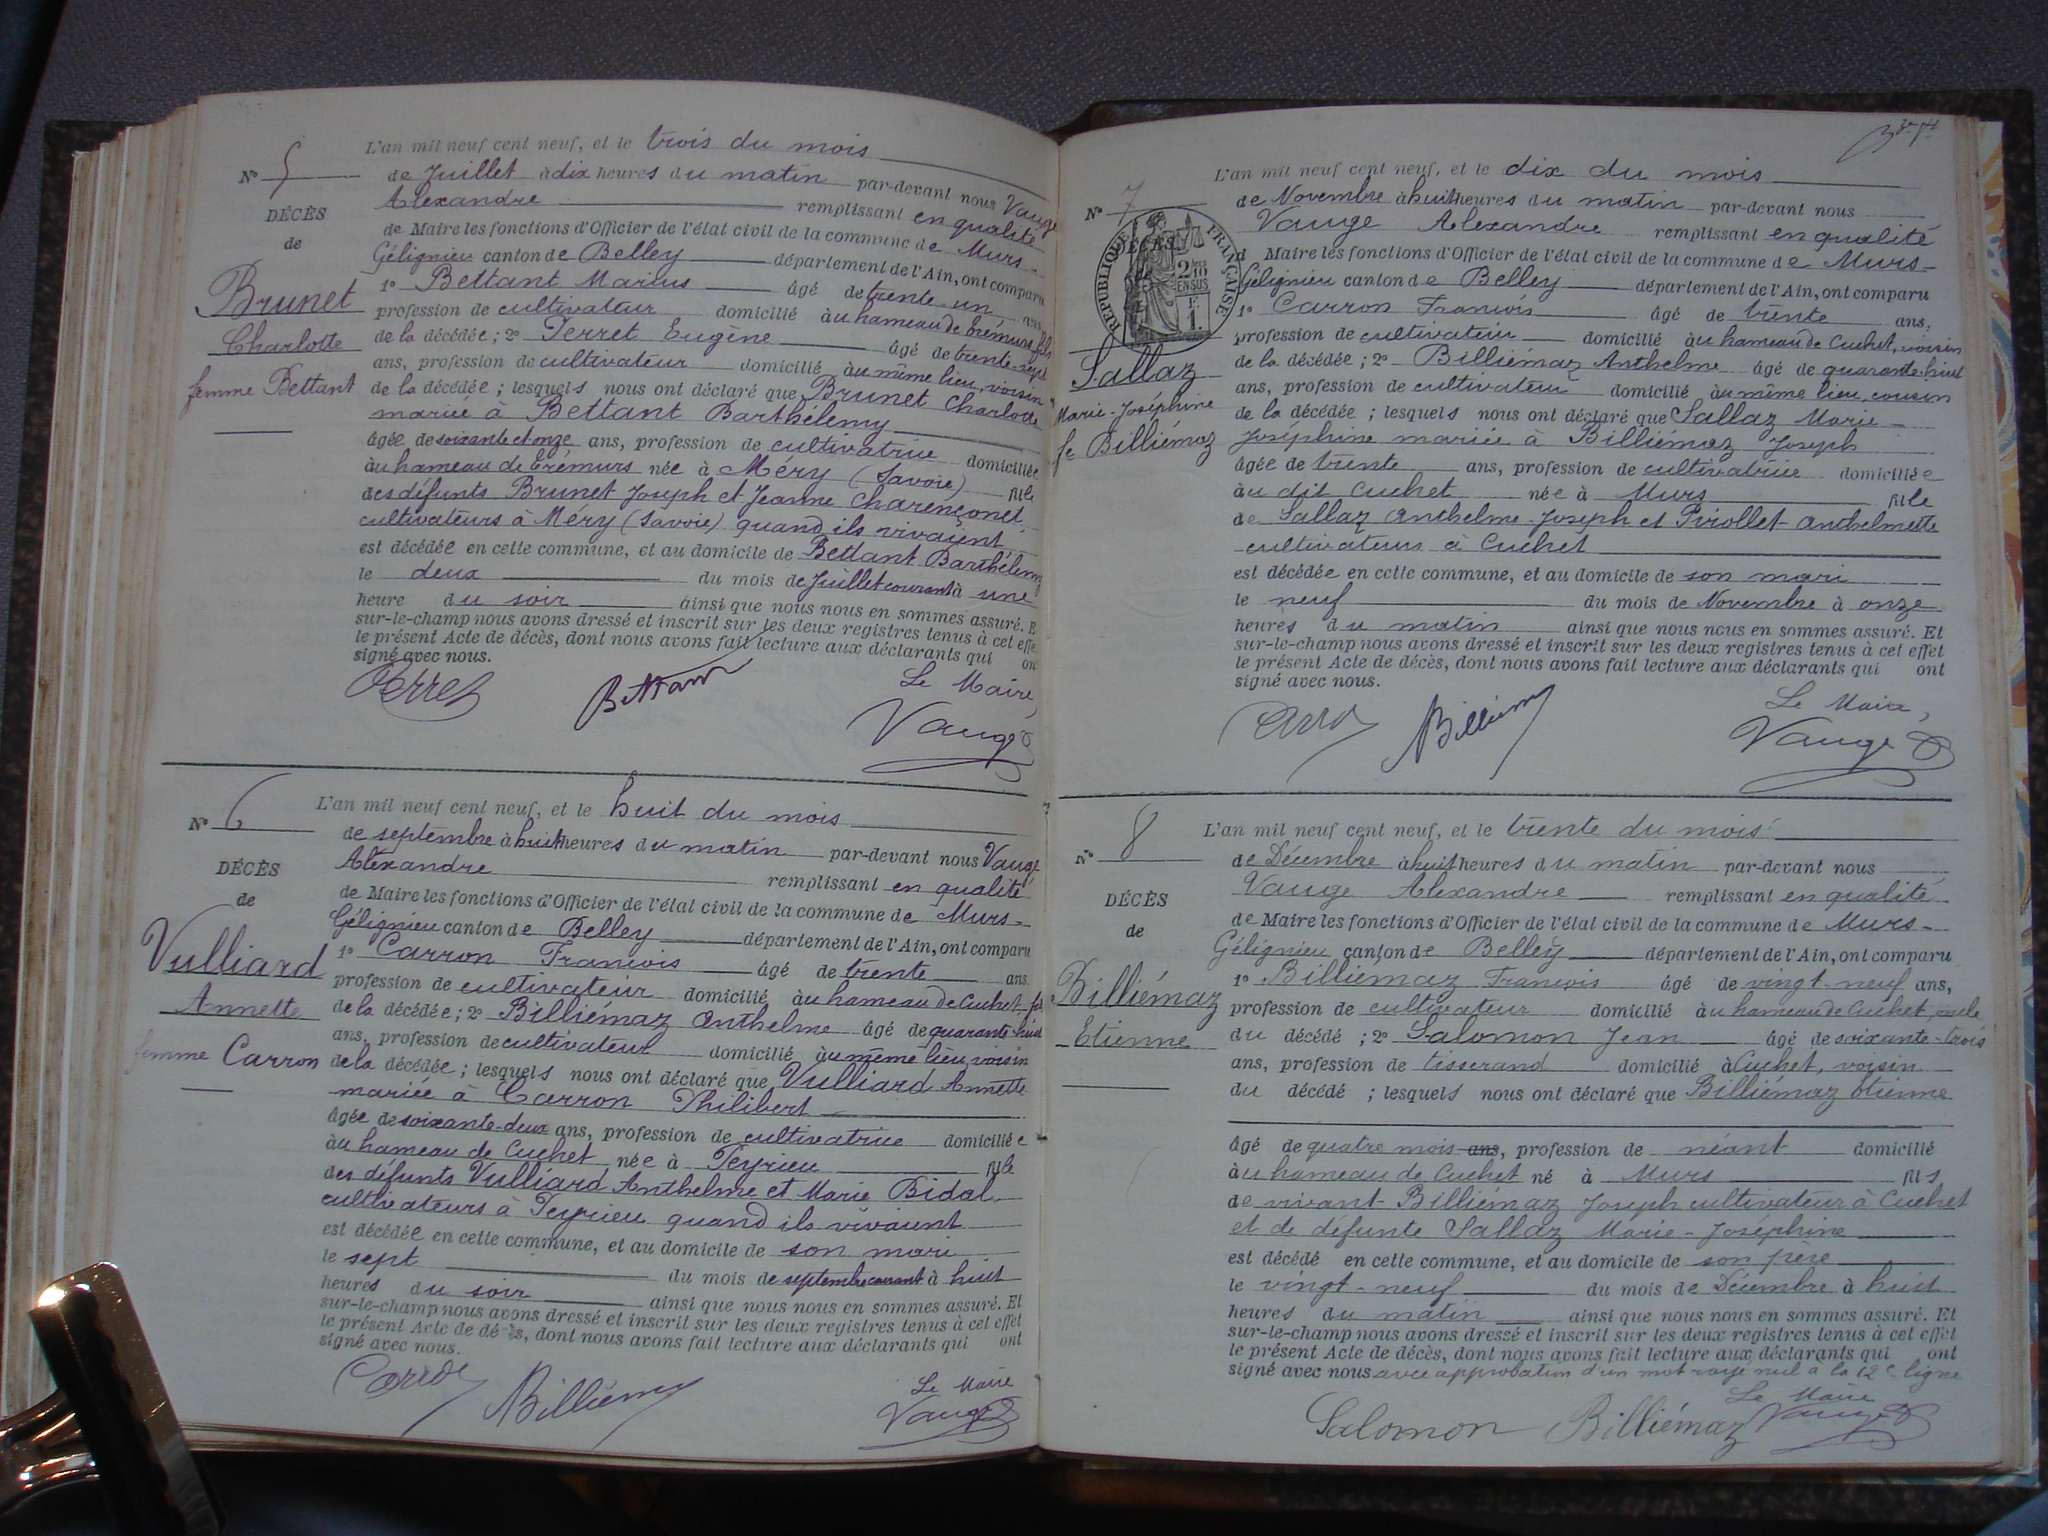 L'an mil neuf cent neuf, et le trois du mois
N° 5
de Juillet à dix heures du matin par-devant nous Vauge
Alexandre remplissant en qualité
DÉCÈS
de Maire les fonctions d'Officier de l'état civil de la commune de Murs-
de
Gélignieu canton de Belley département de l'Ain, ont comparu
1° Bettant Marius âgé de trente-un ans
Brunet
profession de cultivateur domicilié à au hameau de Crémurs, fils
Charlotte
de la décédée ; 2° Perret Eugène âgé de trente-sept
ans, profession de cultivateur domicilié à au même lieu, voisin
femme Bettant
de la décédée ; lesquels nous ont déclaré que Brunet Charlotte
mariée à Bettant Barthélemy
âgée de soixante et onze ans, profession de cultivatrice domiciliée
à au hameau de Crémurs née à Méry (Savoie) fille
des défunts Brunet Joseph et Jeanne Charençonet
cultivateurs à Méry (Savoie) quand ils vivaient
est décédée en cette commune, et au domicile de Bettant Barthélemy
le deux du mois de Juillet courant à une
heure du soir ainsi que nous nous en sommes assuré. E
sur-le-champ nous avons dressé et inscrit sur les deux registres tenus à cet effe
le présent Acte de décès, dont nous avons fait lecture aux déclarants qui on
signé avec nous.
Perret Bettant Le Maire,
Vauge
L'an mil neuf cent neuf, et le huit du mois
N° 6
de septembre à huit heures du matin par-devant nous Vauge
Alexandre remplissant en qualité
DÉCÈS
de Maire les fonctions d'Officier de l'état civil de la commune de Murs-
de
Gélignieu canton de Belley département de l'Ain, ont comparu
Vulliard
1° Carron François âgé de trente ans
profession de cultivateur domicilié à au hameau de Cuchet, fils
Annette
de la décédée ; 2° Billiémaz Anthelme âgé de quarante-huit
ans, profession de cultivateur domicilié à au même lieu, voisin
femme Carron
de la décédée ; lesquels nous ont déclaré que Vulliard Annette
mariée à Carron Philibert
âgée de soixante-deux ans, profession de cultivatrice domiciliée
à au hameau de Cuchet née à Peyrieu fille
des défunts Vulliard Anthelme et Marie Bidal
cultivateurs à Peyrieu quand ils vivaient
est décédée en cette commune, et au domicile de son mari
le sept du mois de septembre courant à huit
heures du soir ainsi que nous nous en sommes assuré. Et
sur-le-champ nous avons dressé et inscrit sur les deux registres tenus à cet effet
le présent Acte de décès, dont nous avons fait lecture aux déclarants qui ont
signé avec nous.
Billiémaz Le Maire
Vauge
L'an mil neuf cent neuf, et le dix du mois
N° 7
de Novembre à huit heures du matin par-devant nous
Vauge Alexandre remplissant en qualité
DÉCÈS
RÉPUBLIQUE FRANÇAISE
2/10 EN SUS
F. 1.
d Maire les fonctions d'Officier de l'état civil de la commune de Murs-
Gélignieu canton de Belley département de l'Ain, ont comparu
1° Carron François âgé de trente ans,
profession de cultivateur domicilié à au hameau de Cuchet, voisin
Sallaz
de la décédée ; 2° Billiémaz Anthelme âgé de quarante-huit
ans, profession de cultivateur domicilié à au même lieu, cousin
Marie-Joséphine
de la décédée ; lesquels nous ont déclaré que Sallaz Marie-
fe Billiémaz
Joséphine mariée à Billiémaz Joseph
âgée de trente ans, profession de cultivatrice domiciliée
à au dit Cuchet née à Murs fille
de Sallaz Anthelme-Joseph et Pirollet Anthelmette
cultivateurs à Cuchet
est décédée en cette commune, et au domicile de son mari
le neuf du mois de Novembre à onze
heures du matin ainsi que nous nous en sommes assuré. Et
sur-le-champ nous avons dressé et inscrit sur les deux registres tenus à cet effet
le présent Acte de décès, dont nous avons fait lecture aux déclarants qui ont
signé avec nous.
Billiémaz Le Maire,
Vauge
L'an mil neuf cent neuf, et le trente du mois
N° 8
de Décembre à huit heures du matin par-devant nous
Vauge Alexandre remplissant en qualité
DÉCÈS
de Maire les fonctions d'Officier de l'état civil de la commune de Murs-
de
Gélignieu canton de Belley département de l'Ain, ont comparu
Billiémaz
1° Billiémaz François âgé de vingt-neuf ans,
profession de cultivateur domicilié à au hameau de Cuchet, oncle
Etienne
du décédé ; 2° Salomon Jean âgé de soixante-trois
ans, profession de tisserand domicilié à Cuchet, voisin
du décédé ; lesquels nous ont déclaré que Billiémaz Etienne
âgé de quatre mois ans, profession de néant domicilié
à au hameau de Cuchet né à Murs fils
de vivant Billiémaz Joseph cultivateur à Cuchet
et de défunte Sallaz Marie-Joséphine
est décédé en cette commune, et au domicile de son père
le vingt-neuf du mois de Décembre à huit
heures du matin ainsi que nous nous en sommes assuré. Et
sur-le-champ nous avons dressé et inscrit sur les deux registres tenus à cet effet
le présent Acte de décès, dont nous avons fait lecture aux déclarants qui ont
signé avec nous avec approbation d'un mot rayé nul à la 12e ligne
Le Maire
Salomon Billiémaz Vauge